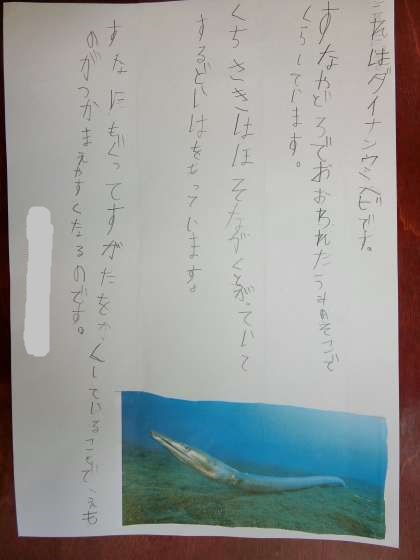 これはダイナンウミヘビです。
すなやどろでおおわれたうみのそこで
くらしています。
くちさきはほそながくとがっていて
するどいはをもっています。
すなにもぐってすがたをかくしていることで、えも
のがつかまえやすくなるのです。